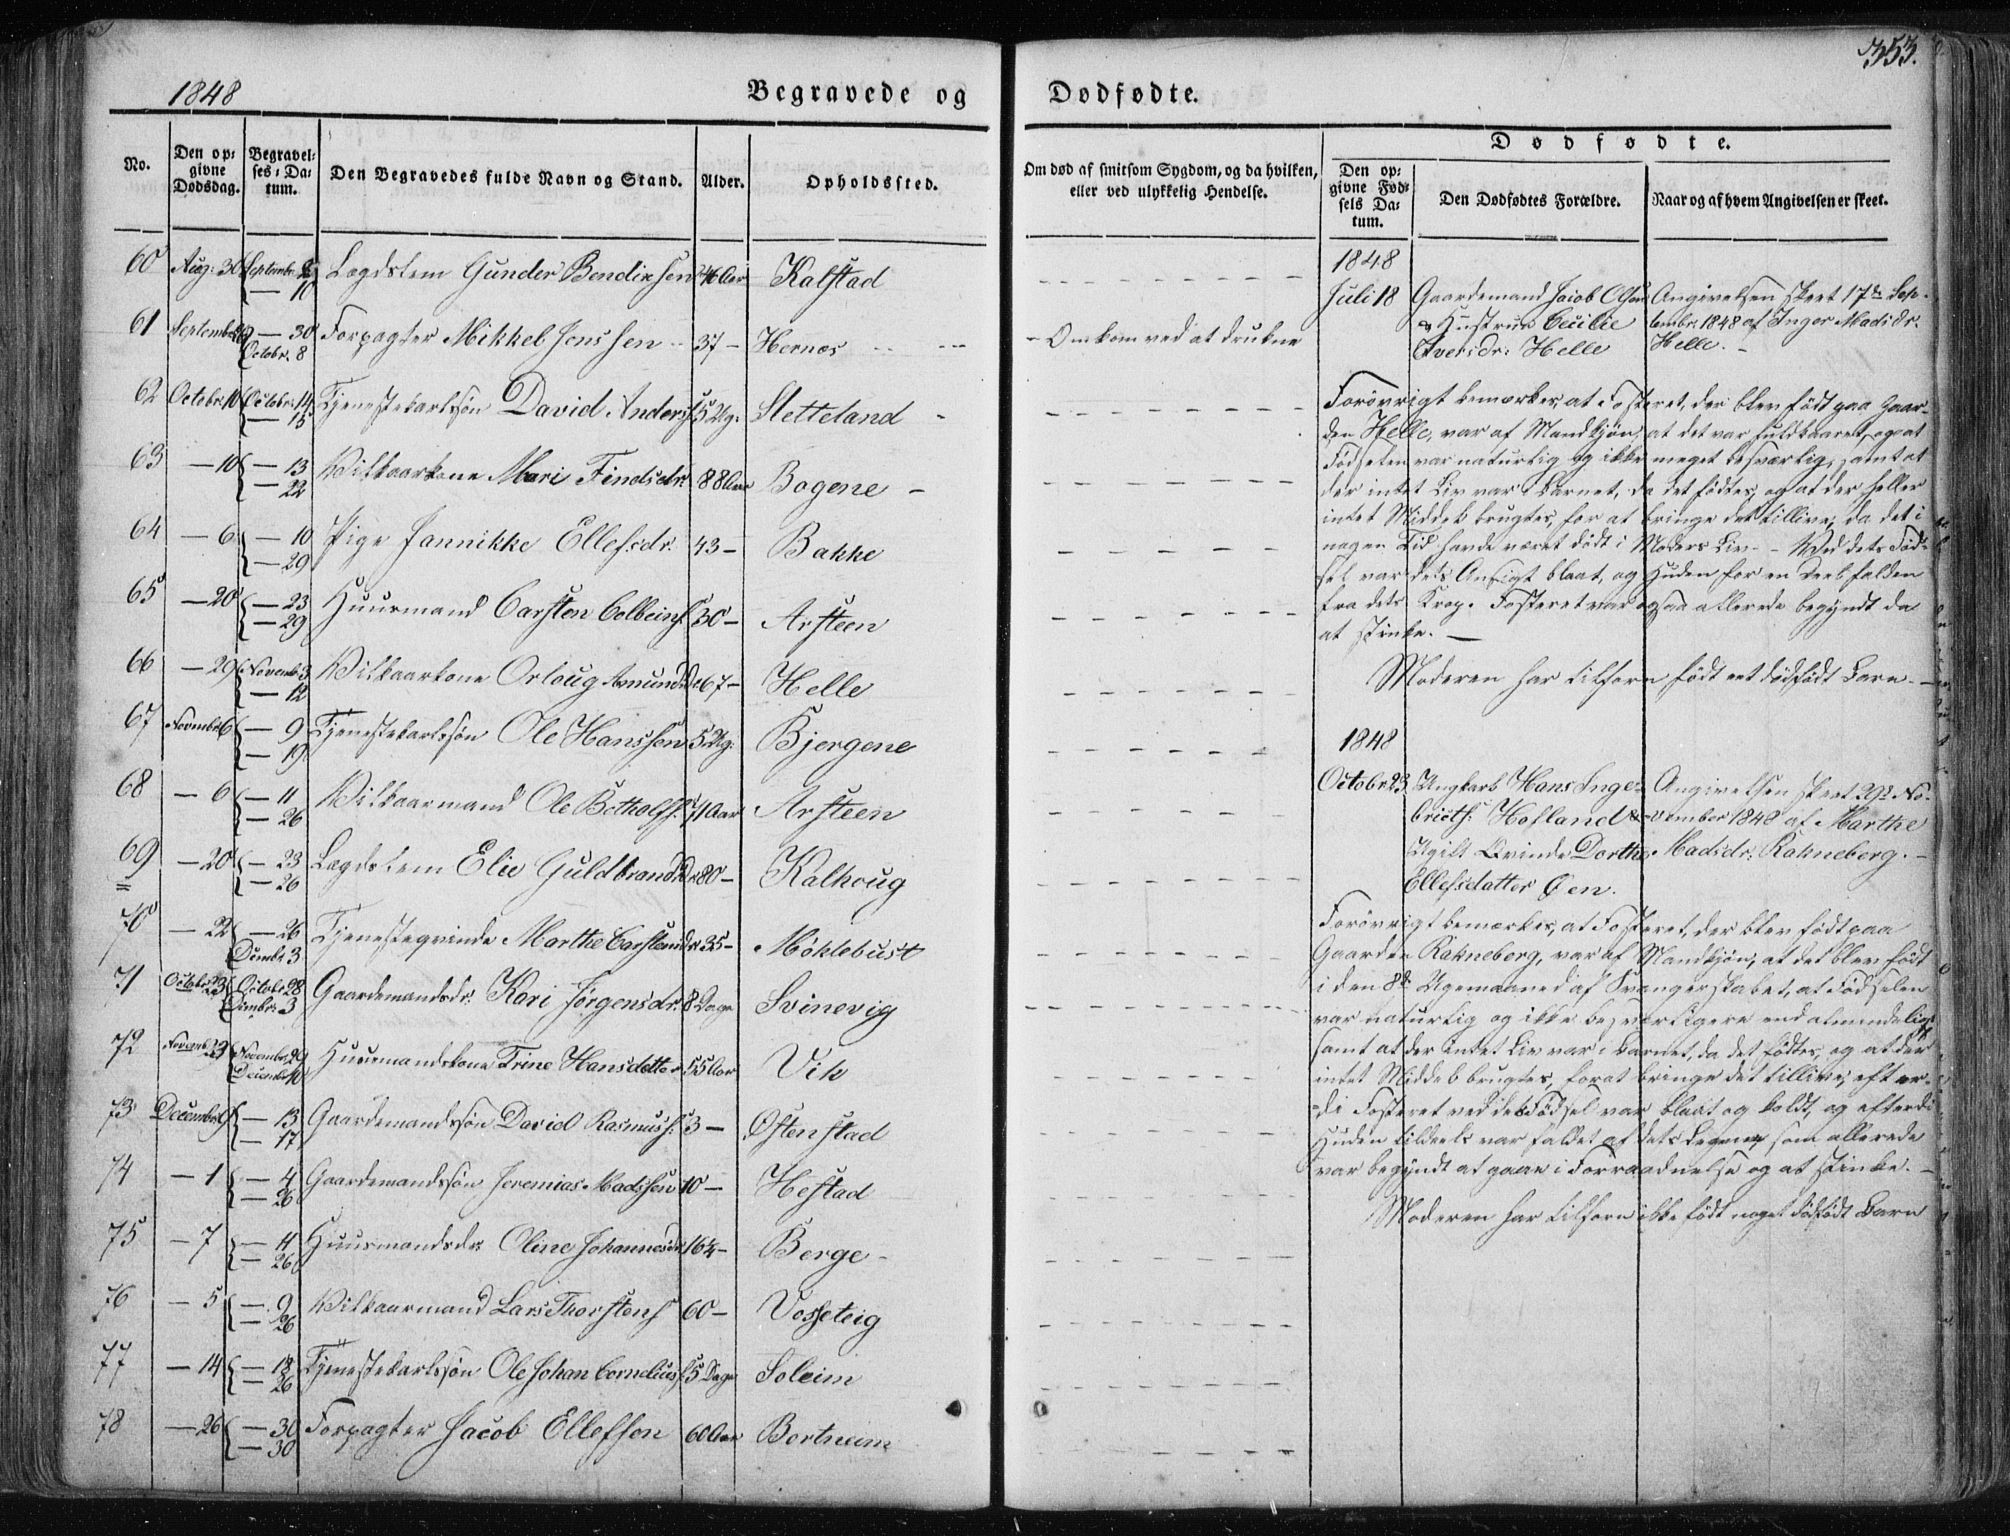 353.
1848 Begravede og Dødfødte.
No.
Den opgivne Dødsdag.
Begravelses-Datum.
Den Begravedes fulde Navn og Stand.
Alder.
Opholdssted.
Om død af smitsom Sygdom, og da hvilken, eller ved ulykkelig Hendelse.
Dødfødte.
Den opgivne Fødsels Datum.
Den Dødfødtes Forældre.
Naar og af hvem Angivelsen er skeet.
60 Aug: 30 Septembr. — 10 Lægdslem Gunder Bendixsen 46 Aar Kalstad
61 Septembr — 30 Octobr. 8 Forpagter Mikkel Jenssen 37 — Hernæs — Omkom ved at drukne
62 Octobr. 10 Octobr. 14 — 15 Tjenestekarlssøn David Anders. 5 Ug: Sletteland
63 — 10 — 13 — 22 Vilkaarkone Mari Findsdr. 88 Aar Bogene
64 — 6 — 10 — 29 Pige Jannikke Ellefsdr. 43 — Bakke
65 — 20 — 23 — 29 Huusmand Carsten Colbeins. 30 — Arsteen
66 — 29 Novemb. 3 — 12 Vilkaarkone Orloug Amundsd. 67 — Helle
67 Novembr. 6 — 9 — 19 Tjenestekarlssøn Ole Hanssen 5 Ug: Bjergene
68 — 6 — 11 — 26 Vilkaarmand Ole Botholfs. 71 Aar Arsteen
69 — 20 — 23 — 26 Lægdslem Elie Guldbrandsdr. 80 — Kalhoug
70 — 22 — 26 Decmbr. 3 Tjenesteqvinde Marthe Carstensdr. 35 — Møklebust
71 Octobr. 23 Octobr. 28 Decmbr. 3 Gaardemandsdr. Kari Jørgensdr. 8 Dage Svinevig
72 Novemb. 23 Novembr. 29 Decembr. 10 Huusmandskone Trine Hansdatter 55 Aar Vik
73 Decembr. 9 — 13 — 17 Gaardemandssøn David Rasmuss. 3 — Østenstad
74 — 1 — 4 — 26 Gaardemandssøn Jeremias Madssen 10 — Hestad
75 — 7 — 11 — 26 Huusmandsdr. Oline Johannesdr. 16¼ — Berge
76 — 5 — 9 — 26 Vilkaarmand Lars Thorstens. 60 — Vosseteig
77 — 14 — 18 — 26 Tjenestekarlssøn Ole Johan Cornelius. 5 Dage Soleim
78 — 26 — 30 — 30 Forpagter Jacob Ellefsen 60 Aar Bortneim
1848
Juli 18 Gaardemand Jacob Olsen Angivelsen skeet 17de Sep-
& Hustrue Cecilie tembr. 1848 af Inger Madsdr.
Iversdr: Helle Helle. —
Forøvrigt bemærkes, at Fosteret, der blev født paa Gaar-
den Helle, var af Mandkjøn, at det var fuldbaaret, og at
Fødselen var naturlig og ikke meget besværlig, samt at
der intet Liv var i Barnet, da det fødtes, og at der heller
intet Middel brugtes, for at bringe det tillive, da det i
nogen Tid havde været dødt i Moders Liv. — Ved dets Fød-
sel var dets Ansigt blaat, og Huden for en Deel falden
fra dets Krop. Fosteret var ogsaa allerede begyndt da
at stinke. —
Moderen har tilforn født eet dødfødt Barn. —
1848
Octobr. 23 Ungkarl Hans Inge- Angivelsen skeet 29de No-
briets. Hofland & vember 1848 af Marthe
Ugift Qvinde Dorthe Madsdr. Rahneberg. —
Ellefsdatter Øen.
Forøvrigt bemærkes, at Fosteret, der blev født paa
Gaarden Rahneberg, var af Mandkjøn, at det blev født
i den 8de Ugemaaned af Svangerskabet, at Fødselen
var naturlig og ikke besværligere end almindeligt
samt at der intet Liv var i Barnet, da det fødtes, og at der
intet Middel brugtes, for at bringe det tillive, efter-
di Fosteret ved dets Fødsel var blaat og koldt, og efterdi
Huden tildeels var faldet af dets Legeme, som allerede
var begyndt at gaae i Forraadnelse og at stinke. —
Moderen har tilforn ikke født noget dødfødt Barn